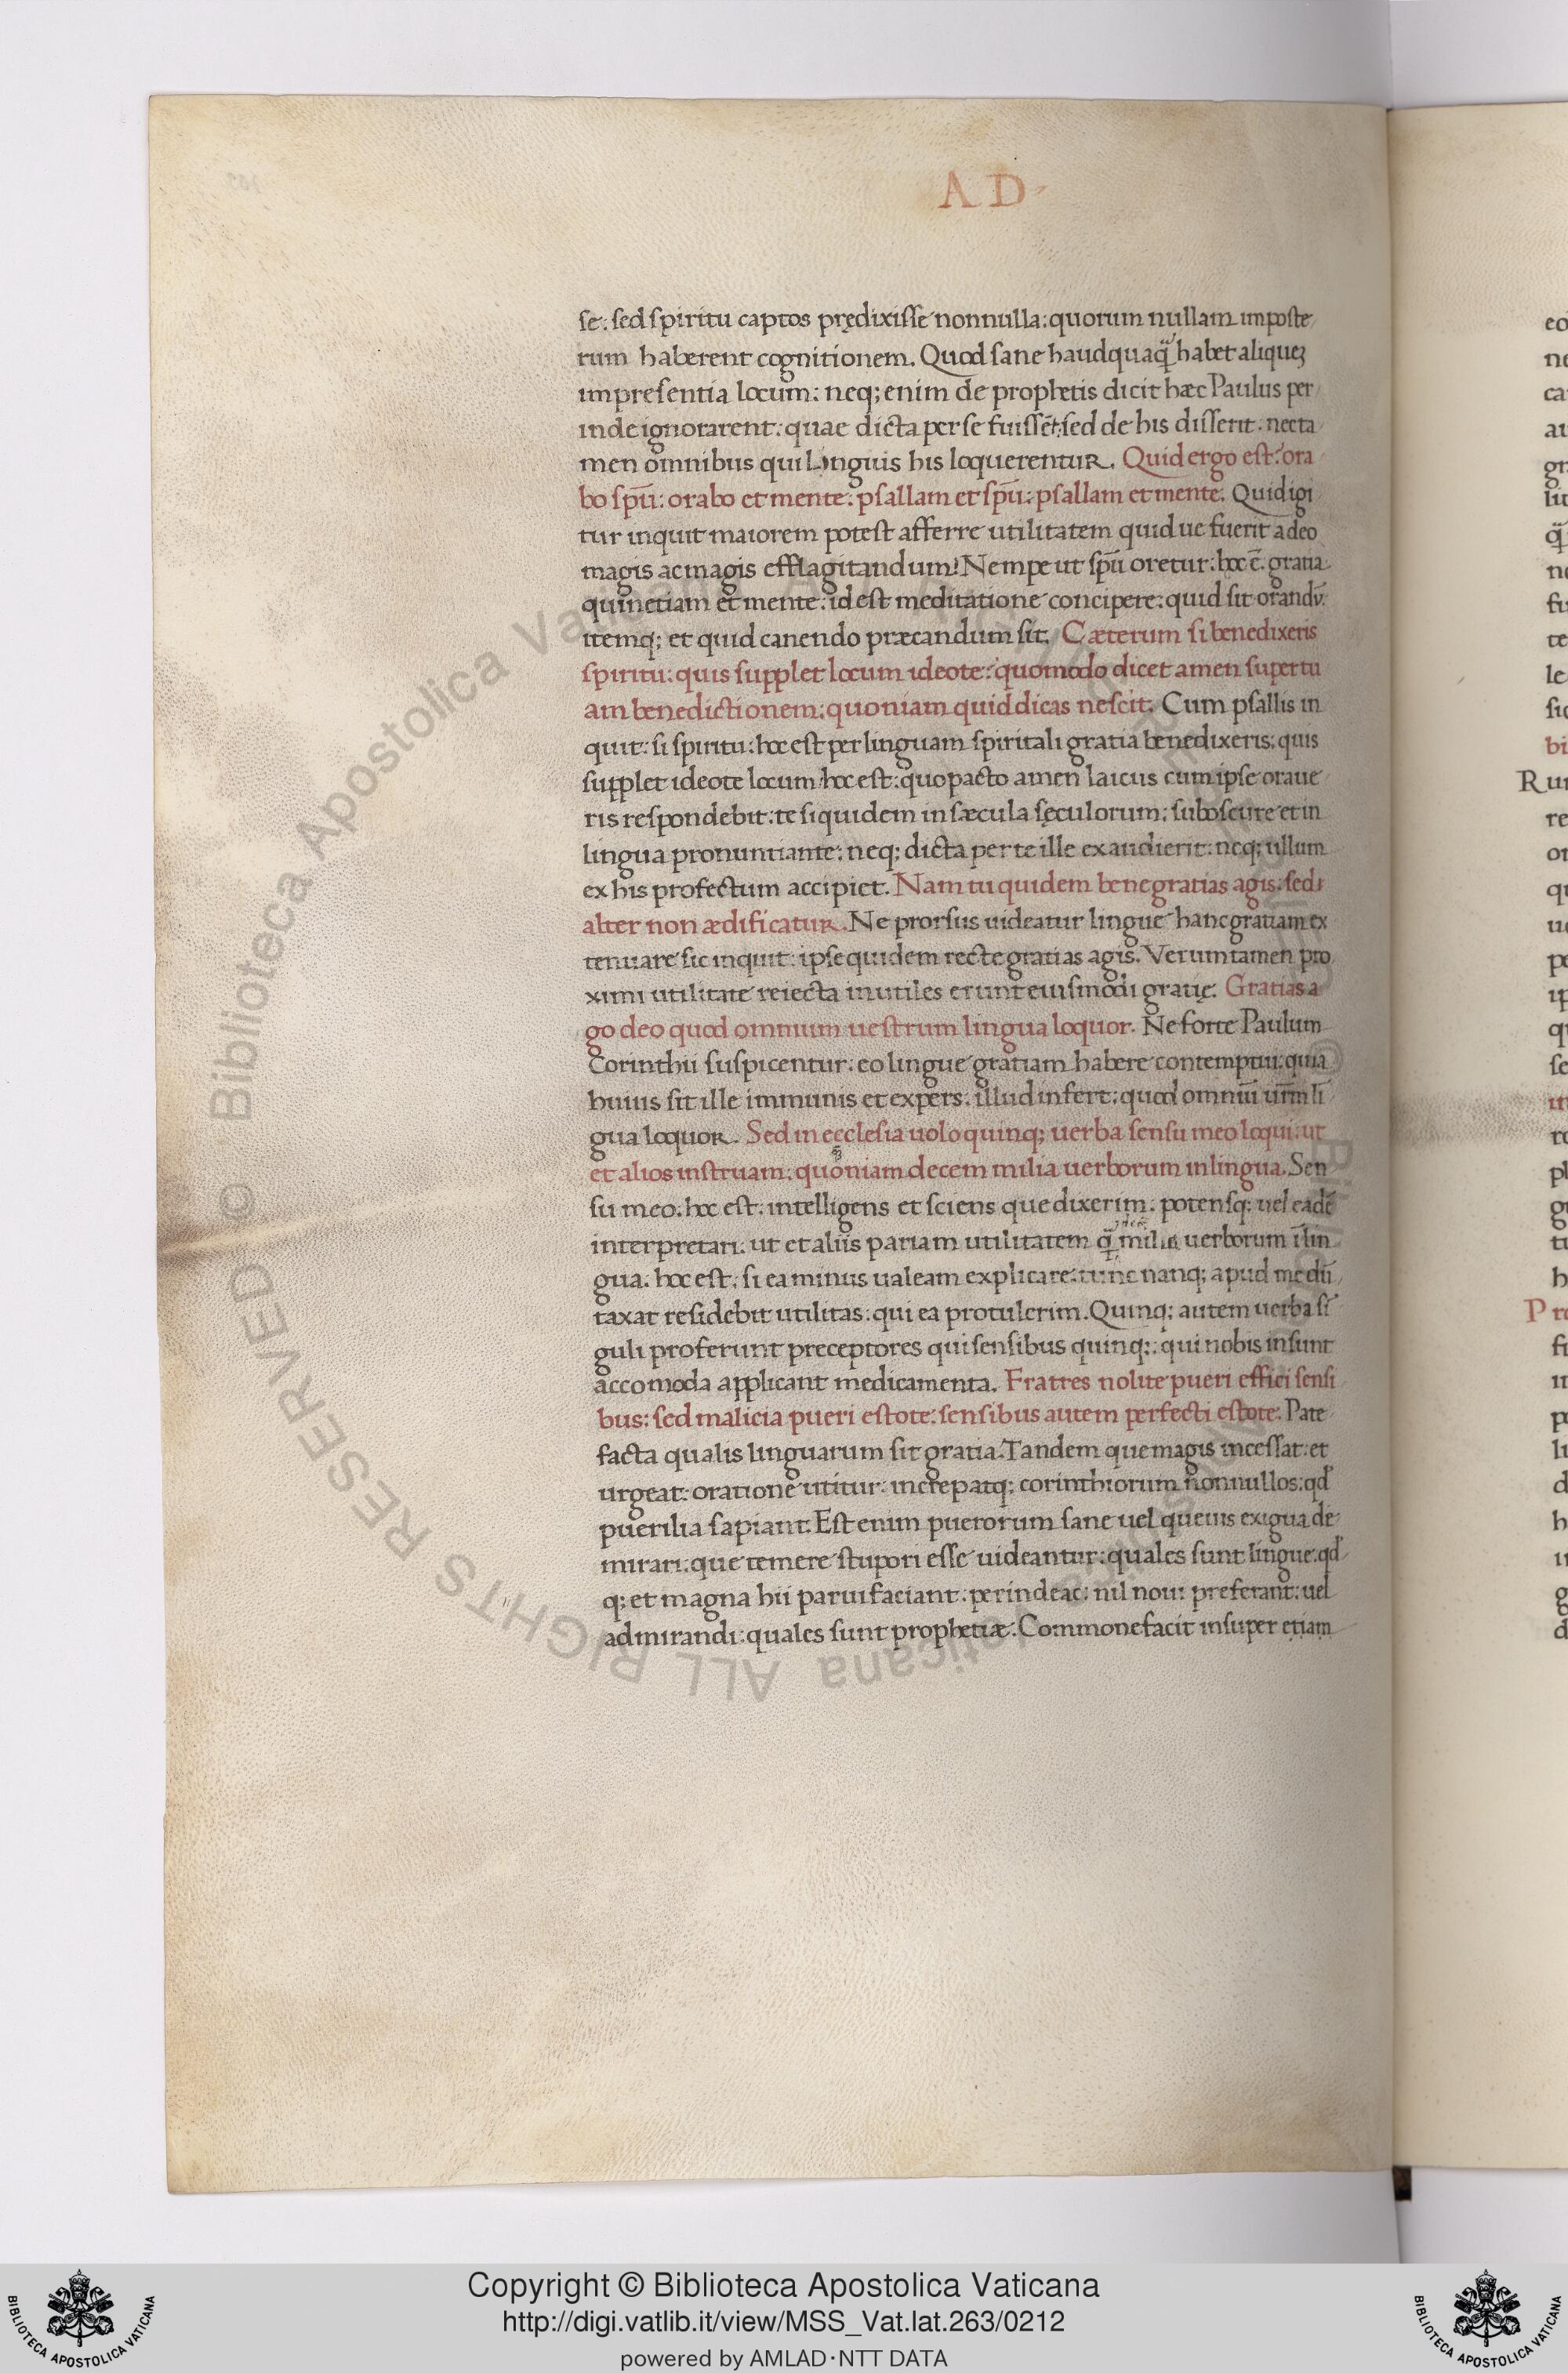 A D
se: sed spiritu captos prędixisse nonnulla: quorum nullam imposte
rum haberent cognitionem. Quod sane haudquaq̃ habet aliquez
impresentia locum: neq; enim de prophetis dicit hæc Paulus per
inde ignorarent: quae dicta per se fuissēt: sed de his disserit: nec ta
men omnibus qui linguis his loquerentur. Quid ergo est? ora
bo spū: orabo et mente: psallam et spū: psallam et mente. Quid igi
tur inquit maiorem potest afferre utilitatem quid ue fuerit a deo
magis ac magis efflagitandum? Nempe ut spū oretur: hoc ē. gratia
quinetiam et mente: id est meditatione concipere: quid sit orandū.
itemq; et quid canendo præcandum sit. Cæterum si benedixeris
spiritu: quis supplet locum ideote? quomodo dicet amen super tu
am benedictionem: quoniam quid dicas nescit. Cum psallis in
quit: si spiritu: hoc est per linguam spiritali gratia benedixeris: quis
supplet ideote locum hoc est: quo pacto amen laicus cum ipse oraue
ris respondebit: te siquidem in sæcula sęculorum: suboscure et in
lingua pronuntiante: neq; dicta per te ille exaudierit: neq; ullum
ex his profectum accipiet. Nam tu quidem bene gratias agis: sed
alter non ædificatur. Ne prorsus uideatur lingue hanc gratiam ex
tenuare sic inquit: ipse quidem recte gratias agis. Verum tamen pro
ximi utilitate reiecta inutiles erunt eiusmodi gratię. Gratias a
go deo quod omnium uestrum lingua loquor. Ne forte Paulum
Corinthii suspicentur: eo lingue gratiam habere contemptui: quia
huius sit ille immunis et expers: illud infert: quod omniū urm̄ lī
gua loquor. Sed in ecclesia uolo quinq; uerba sensu meo loqui: ut
et alios instruam: quoniam decem milia uerborum in lingua. Sen
su meo. hoc est: intelligens et sciens que dixerim: potensq; uel eadē
interpretari: ut et aliis pariam utilitatem q̃ milia uerborum ī lin
gua. hoc est: si ea minus ualeam explicare: tunc nanq; apud me dū
taxat residebit utilitas: qui ea protulerim. Quinq; autem uerba sī
guli proferunt preceptores qui sensibus quinq;: qui nobis insunt
accomoda applicant medicamenta. Fratres nolite pueri effici sensi
bus: sed malicia pueri estote: sensibus autem perfecti estote. Pate
facta qualis linguarum sit gratia. Tandem que magis incessat: et
urgeat: oratione utitur: increpatq; corinthiorum nonnullos: qd
puerilia sapiant. Est enim puerorum sane uel queuis exigua de
mirari: que temere stupori esse uideantur: quales sunt lingue: qd
q; et magna hii parui faciant: perinde ac: nil noui preferant: uel
admirandi: quales sunt prophetiæ. Commonefacit insuper etiam
© Biblioteca Apostolica Vaticana ALL RIGHTS RESERVED
Copyright © Biblioteca Apostolica Vaticana
http://digi.vatlib.it/view/MSS_Vat.lat.263/0212
powered by AMLAD·NTT DATA
BIBLIOTECA APOSTOLICA VATICANA
BIBLIOTECA APOSTOLICA VATICANA